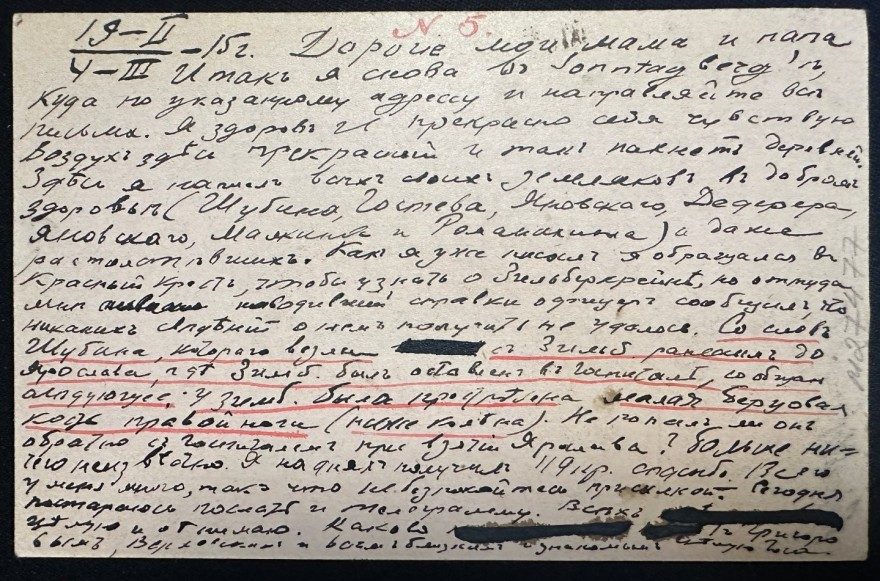 N 5.
19–II
4–III –15г. Дорогие мои мама и папа
Итакъ я снова въ Sonntagberg'ѣ,
куда по указанному адрессу и направляйте всѣ
письма. Я здоровъ и прекрасно себя чувствую
Воздухъ здѣсь прекрасный и такъ пахнетъ деревней.
Здѣсь я нашелъ всѣхъ своихъ земляковъ въ добромъ
здоровьѣ (Шубина, Гостева, Яновскаго, Дедерера,
Яновскаго, Маякина и Романихина) и даже
растолстѣвшихъ. Какъ я уже писалъ я обращался въ
Красный Крестъ, чтобы узнать о Зильберкрейнѣ, но оттуда
мнѣ наводившій справки офицеръ сообщилъ, что
никакихъ свѣдѣній о немъ получить не удалось. Со словъ
Шубина, котораго везли съ Зильб. раненымъ до
Ярослава, гдѣ Зильб. былъ оставленъ въ госпиталѣ, сообщаю
слѣдующее: у Зильб. была прострѣлена малая берцовая
кость правой ноги (ниже колѣна). Не попалъ ли онъ
обратно съ госпиталемъ при взятіи Ярослава? Больше ни-
чего неизвѣстно. Я на дняхъ получилъ 119 кр. спасибо. Всего
у меня много, такъ что не безпокойтесь присылкой. Сегодня
постараюсь послать и телеграмму. Всѣхъ
цѣлую и обнимаю. Каково
вымъ, и всѣмъ близкимъ и знакомымъ
м27477